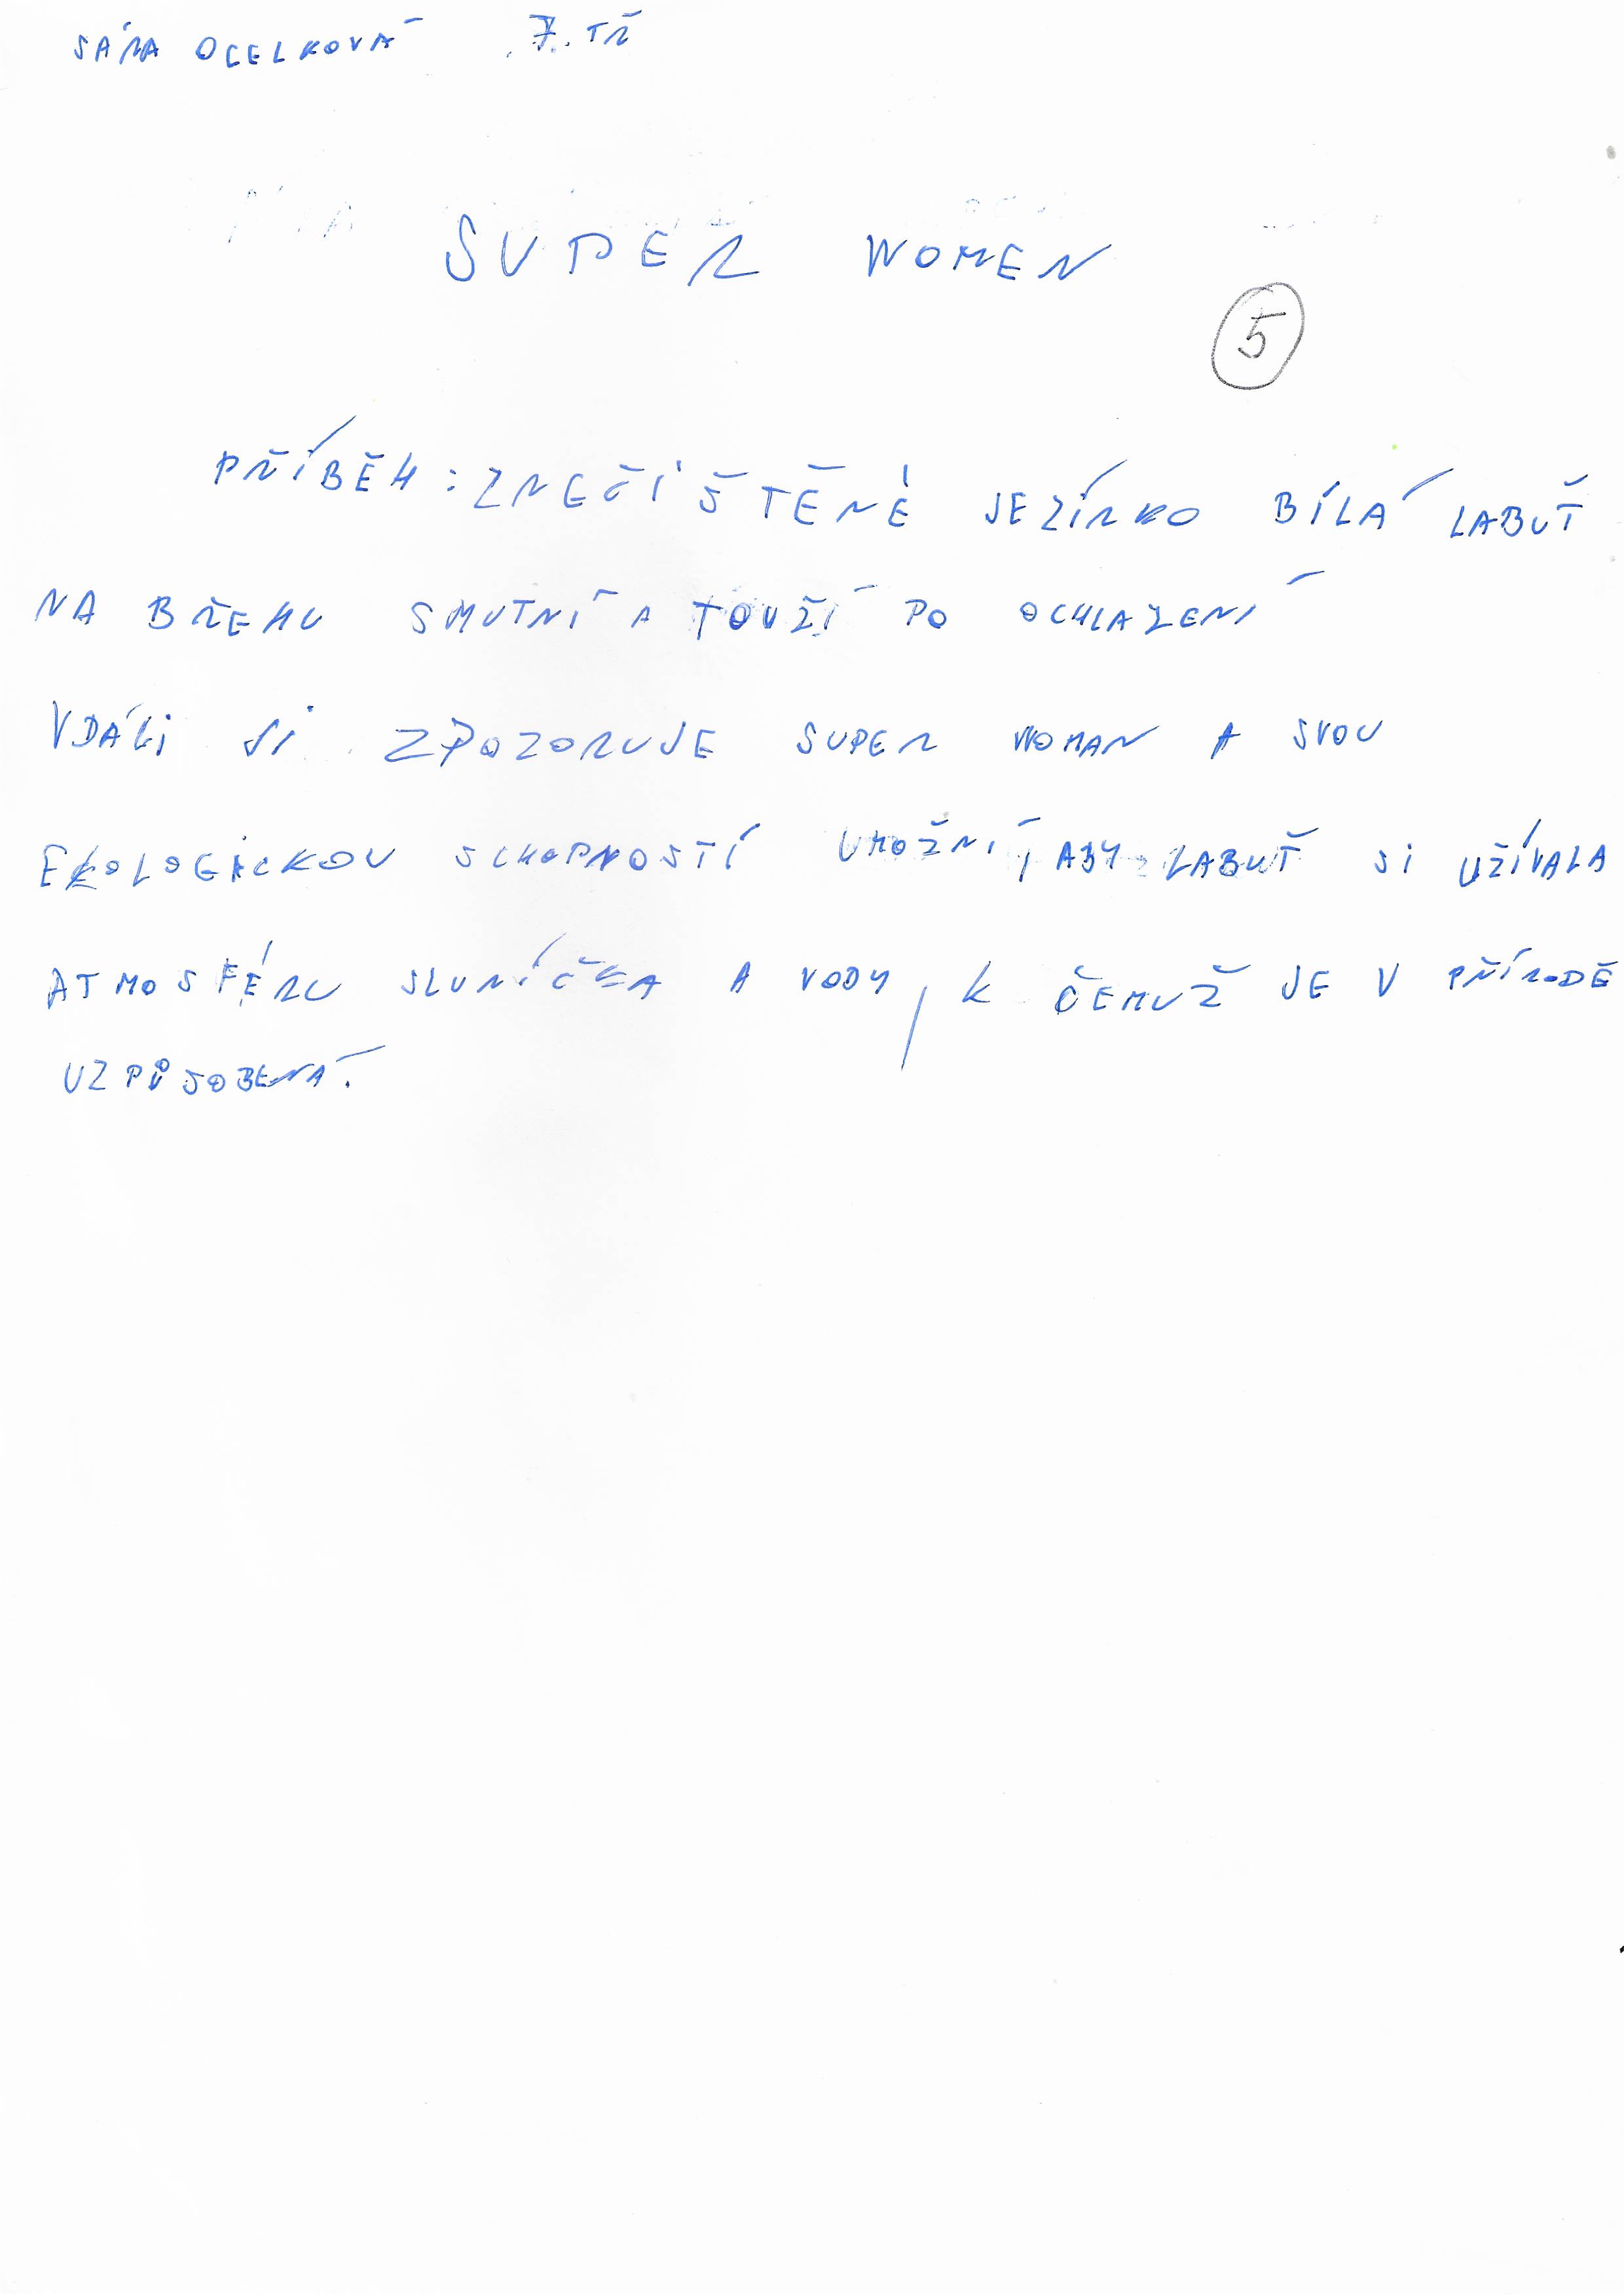 SÁRA OCELKOVÁ 7. TŘ
SUPER WOMEN
5
PŘÍBĚH: ZNEČIŠTĚNÉ JEZÍRKO BÍLÁ LABUŤ
NA BŘEHU SMUTNÍ A TOUŽÍ PO OCHLAZENÍ
VDÁLI JI ZPOZORUJE SUPER WOMAN A SVOU
EKOLOGICKOU SCHOPNOSTÍ UMOŽNÍ, ABY LABUŤ SI UŽÍVALA
ATMOSFÉRU SLUNÍČKA A VODY, K ČEMUŽ JE V PŘÍRODĚ
UZPŮSOBENÁ.